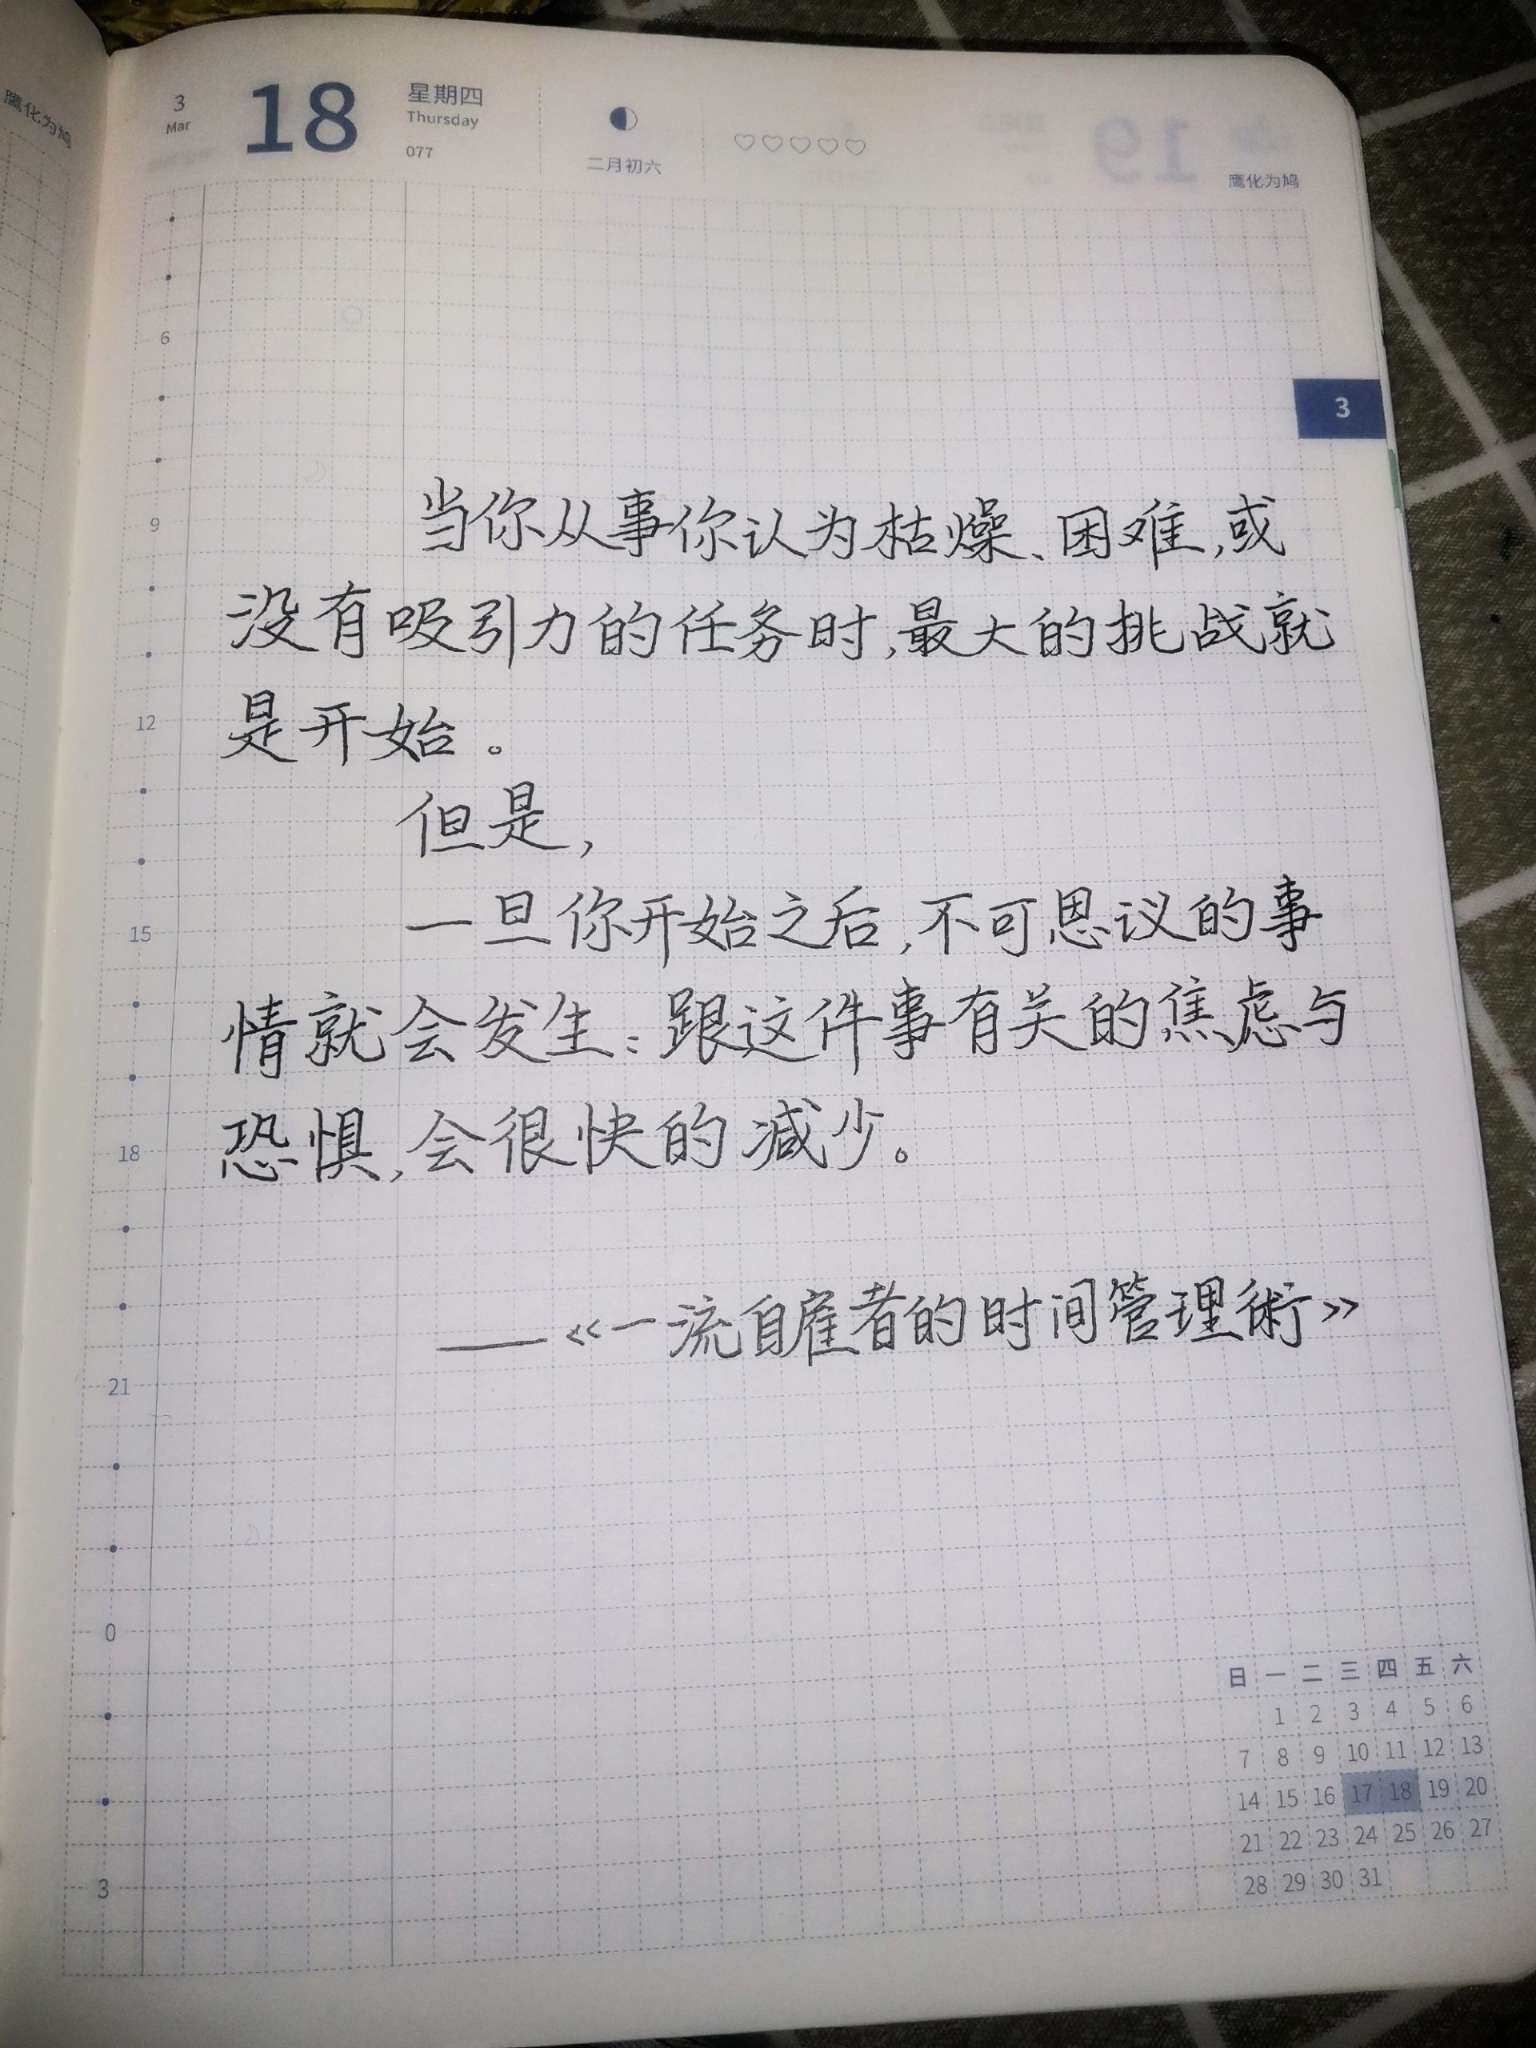 鹰化为鸠
3
Mar
18
星期四
Thursday
077
二月初六
19
鹰化为鸠
3
6
9
12
15
18
21
0
3
当你从事你认为枯燥、困难,或
没有吸引力的任务时,最大的挑战就
是开始。
但是,
一旦你开始之后,不可思议的事
情就会发生:跟这件事有关的焦虑与
恐惧,会很快的减少。
——《一流自雇者的时间管理術》
日 一 二 三 四 五 六
1 2 3 4 5 6
7 8 9 10 11 12 13
14 15 16 17 18 19 20
21 22 23 24 25 26 27
28 29 30 31